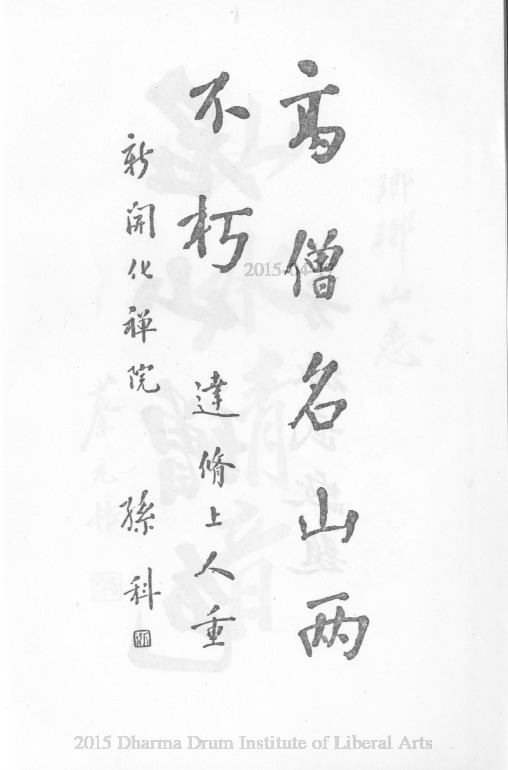 高僧名山两
不朽 達脩上人重
新開化禅院 孫科
2015-04
2015 Dharma Drum Institute of Liberal Arts